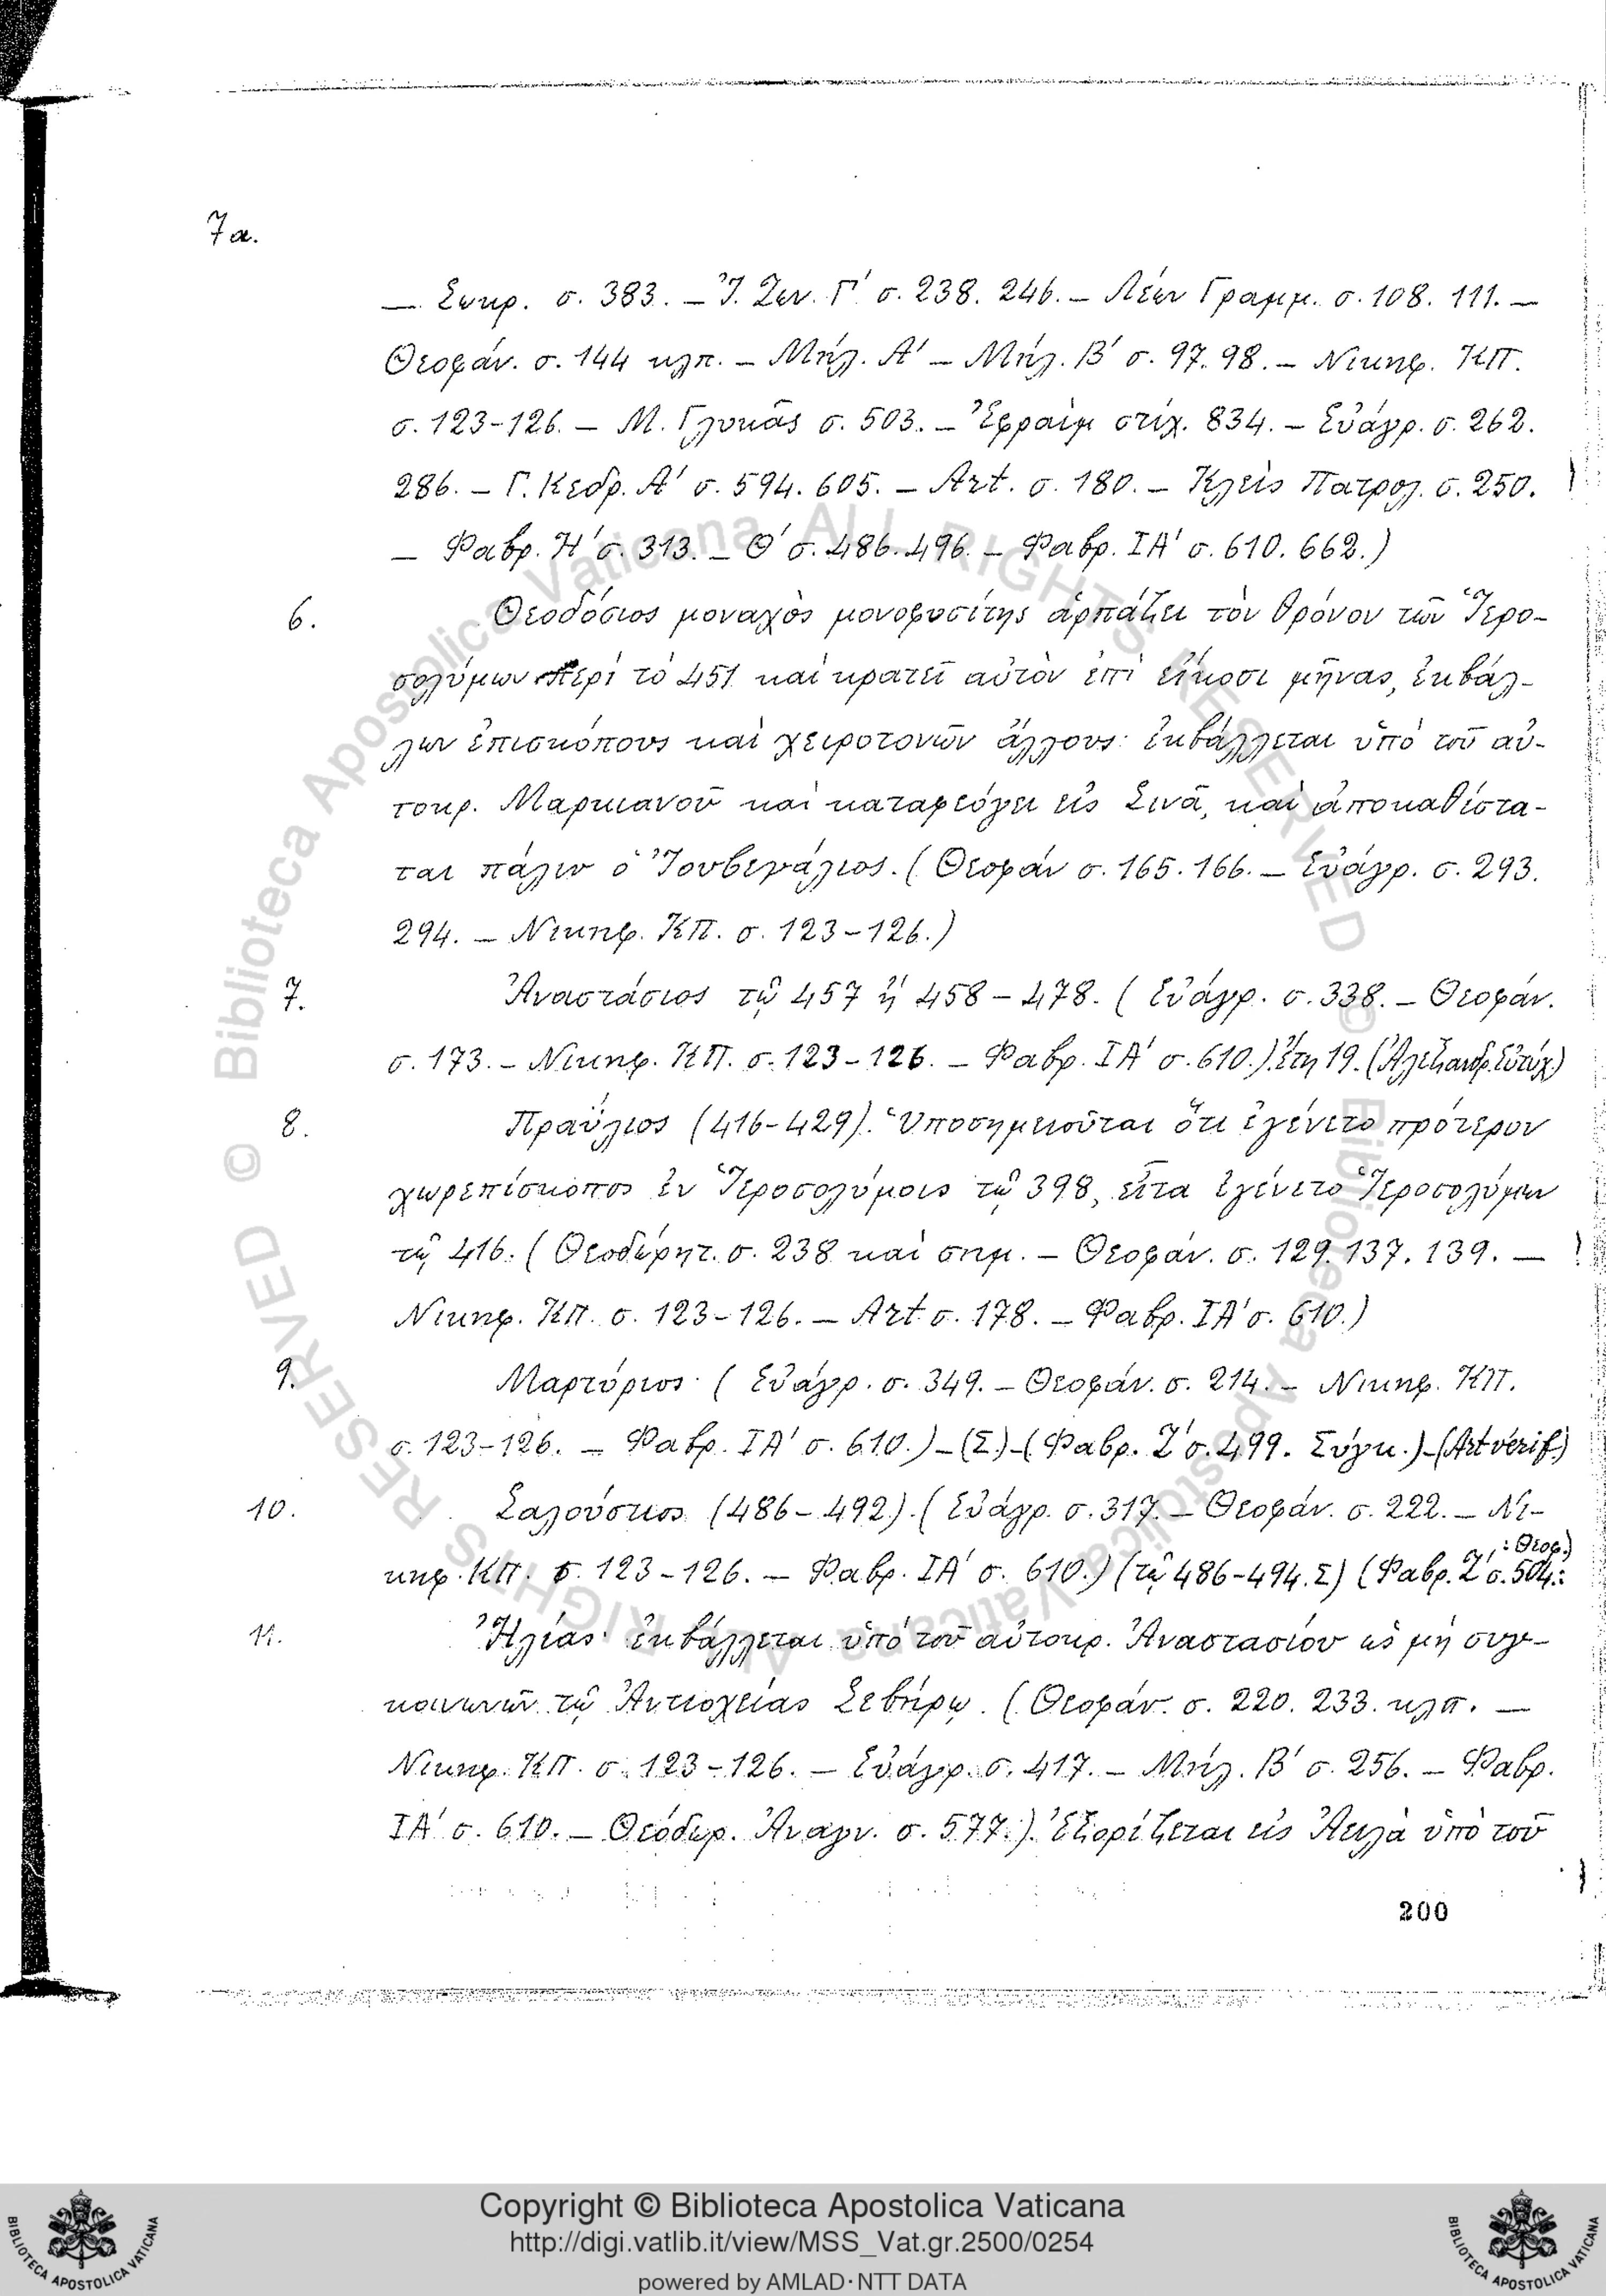 7α.
— Σωκρ. σ. 383. – Ἰ. Ζων. Γʹ σ. 238. 246. – Λέων Γραμμ. σ. 108. 111. –
Θεοφάν. σ. 144 κλπ. – Μήλ. Αʹ – Μήλ. Βʹ σ. 97. 98. – Νικηφ. ΚΠ.
σ. 123-126. – Μ. Γλυκᾶς σ. 503. – Ἐφραὶμ στίχ. 834. – Εὐάγρ. σ. 262.
286. – Γ. Κεδρ. Αʹ σ. 594. 605. – Art. σ. 180. – Κλεὶς Πατρολ. σ. 250.
– Φαβρ. Ηʹ σ. 313. – Θʹ σ. 486. 496. – Φαβρ. ΙΑʹ σ. 610. 662.)
6. Θεοδόσιος μοναχὸς μονοφυσίτης ἁρπάζει τὸν θρόνον τῶν Ἱερο-
σολύμων περὶ τὸ 451 καὶ κρατεῖ αὐτὸν ἐπὶ εἴκοσι μῆνας, ἐκβάλ-
λων ἐπισκόπους καὶ χειροτονῶν ἄλλους· ἐκβάλλεται ὑπὸ τοῦ αὐ-
τοκρ. Μαρκιανοῦ καὶ καταφεύγει εἰς Σινᾶ, καὶ ἀποκαθίστα-
ται πάλιν ὁ Ἰουβενάλιος. (Θεοφάν σ. 165. 166. – Εὐάγρ. σ. 293.
294. – Νικηφ. ΚΠ. σ. 123-126.)
7. Ἀναστάσιος τῷ 457 ἢ 458 – 478. (Εὐάγρ. σ. 338. – Θεοφάν.
σ. 173. – Νικηφ. ΚΠ. σ. 123-126. – Φαβρ. ΙΑʹ σ. 610.) ἔτη 19. (Ἀλεξανδρ. Εὐτύχ.)
8. Πραΰλιος (416-429). Ὑποσημειοῦται ὅτι ἐγένετο πρότερον
χωρεπίσκοπος ἐν Ἱεροσολύμοις τῷ 398, εἶτα ἐγένετο Ἱεροσολύμων
τῷ 416. (Θεοδώρητ. σ. 238 καὶ σημ. – Θεοφάν. σ. 129. 137. 139. —
Νικηφ. ΚΠ. σ. 123-126. – Art σ. 178. – Φαβρ. ΙΑʹ σ. 610.)
9. Μαρτύριος· (Εὐάγρ. σ. 349. – Θεοφάν. σ. 214. – Νικηφ. ΚΠ.
σ. 123-126. – Φαβρ. ΙΑʹ σ. 610.) – (Σ) – (Φαβρ. Ζʹ σ. 499. Σύγκ.) – (Art vérif.)
10. Σαλούστιος (486-492). (Εὐάγρ. σ. 317. – Θεοφάν. σ. 222. – Νι-
κηφ. ΚΠ. σ. 123-126. – Φαβρ. ΙΑʹ σ. 610.) (τῷ 486-494. Σ) (Φαβρ. Ζʹ σ. 504.: : Θεοφ.)
11. Ἠλίας· ἐκβάλλεται ὑπὸ τοῦ αὐτοκρ. Ἀναστασίου ὡς μὴ συγ-
κοινωνῶν τῷ Ἀντιοχείας Σεβήρῳ. (Θεοφάν. σ. 220. 233. κλπ. —
Νικηφ. ΚΠ. σ. 123-126. – Εὐάγρ. σ. 417. – Μήλ. Βʹ σ. 256. – Φαβρ.
ΙΑʹ σ. 610. – Θεόδωρ. Ἀναγν. σ. 577.). Ἐξορίζεται εἰς Ἀειλὰ ὑπὸ τοῦ
200
© Biblioteca Apostolica Vaticana ALL RIGHTS RESERVED © Biblioteca Apostolica Vaticana ALL RIGHTS RESERVED
Copyright © Biblioteca Apostolica Vaticana
http://digi.vatlib.it/view/MSS_Vat.gr.2500/0254
powered by AMLAD·NTT DATA
BIBLIOTECA APOSTOLICA VATICANA
BIBLIOTECA APOSTOLICA VATICANA